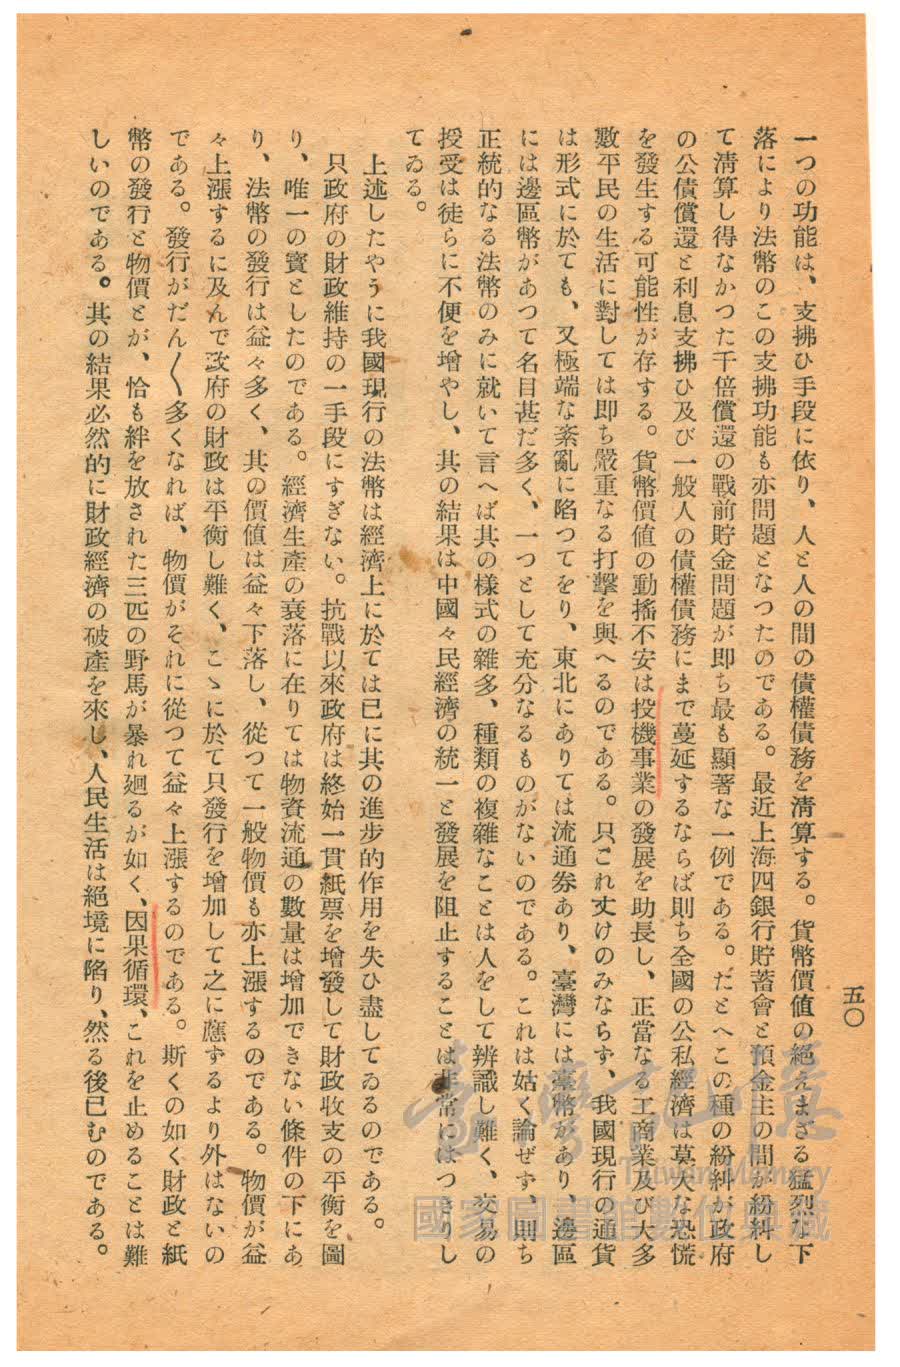 五〇
一つの功能は、支拂ひ手段に依り、人と人の間の債權債務を淸算する。貨幣價値の絕えまざる猛烈な下
落により法幣のこの支拂功能も亦問題となつたのである。最近上海四銀行貯蓄會と預金主の間が紛糾し
て淸算し得なかつた千倍償還の戰前貯金問題が卽ち最も顯著な一例である。だとへこの種の紛糾が政府
の公債償還と利息支拂ひ及び一般人の債權債務にまで蔓延するならば則ち全國の公私經濟は莫大な恐慌
を發生する可能性が存する。貨幣價値の動搖不安は投機事業の發展を助長し、正當なる工商業及び大多
數平民の生活に對しては卽ち嚴重なる打擊を與へるのである。只これ丈けのみならず、我國現行の通貨
は形式に於ても、又極端な紊亂に陷つてをり、東北にありては流通券あり、臺灣には臺幣があり、邊區
には邊區幣があつて名目甚だ多く、一つとして充分なるものがないのである。これは姑く論ぜず、則ち
正統的なる法幣のみに就いて言へば其の樣式の雜多、種類の複雜なことは人をして辨識し難く、交易の
授受は徒らに不便を增やし、其の結果は中國々民經濟の統一と發展を阻止することは非常にはつきりし
てゐる。
上述したやうに我國現行の法幣は經濟上に於ては已に其の進步的作用を失ひ盡してゐるのである。
只政府の財政維持の一手段にすぎない。抗戰以來政府は終始一貫紙票を增發して財政收支の平衡を圖
り、唯一の寶としたのである。經濟生產の衰落に在りては物資流通の數量は增加できない條件の下にあ
り、法幣の發行は益々多く、其の價値は益々下落し、從つて一般物價も亦上漲するのである。物價が益
々上漲するに及んで政府の財政は平衡し難く、こゝに於て只發行を增加して之に應ずるより外はないの
である。發行がだん〱多くなれば、物價がそれに從つて益々上漲するのである。斯くの如く財政と紙
幣の發行と物價とが、恰も絆を放された三匹の野馬が暴れ廻るが如く、因果循環、これを止めることは難
しいのである。其の結果必然的に財政經濟の破產を來し、人民生活は絕境に陷り、然る後已むのである。
臺灣記憶
Taiwan Memory
國家圖書館數位典藏